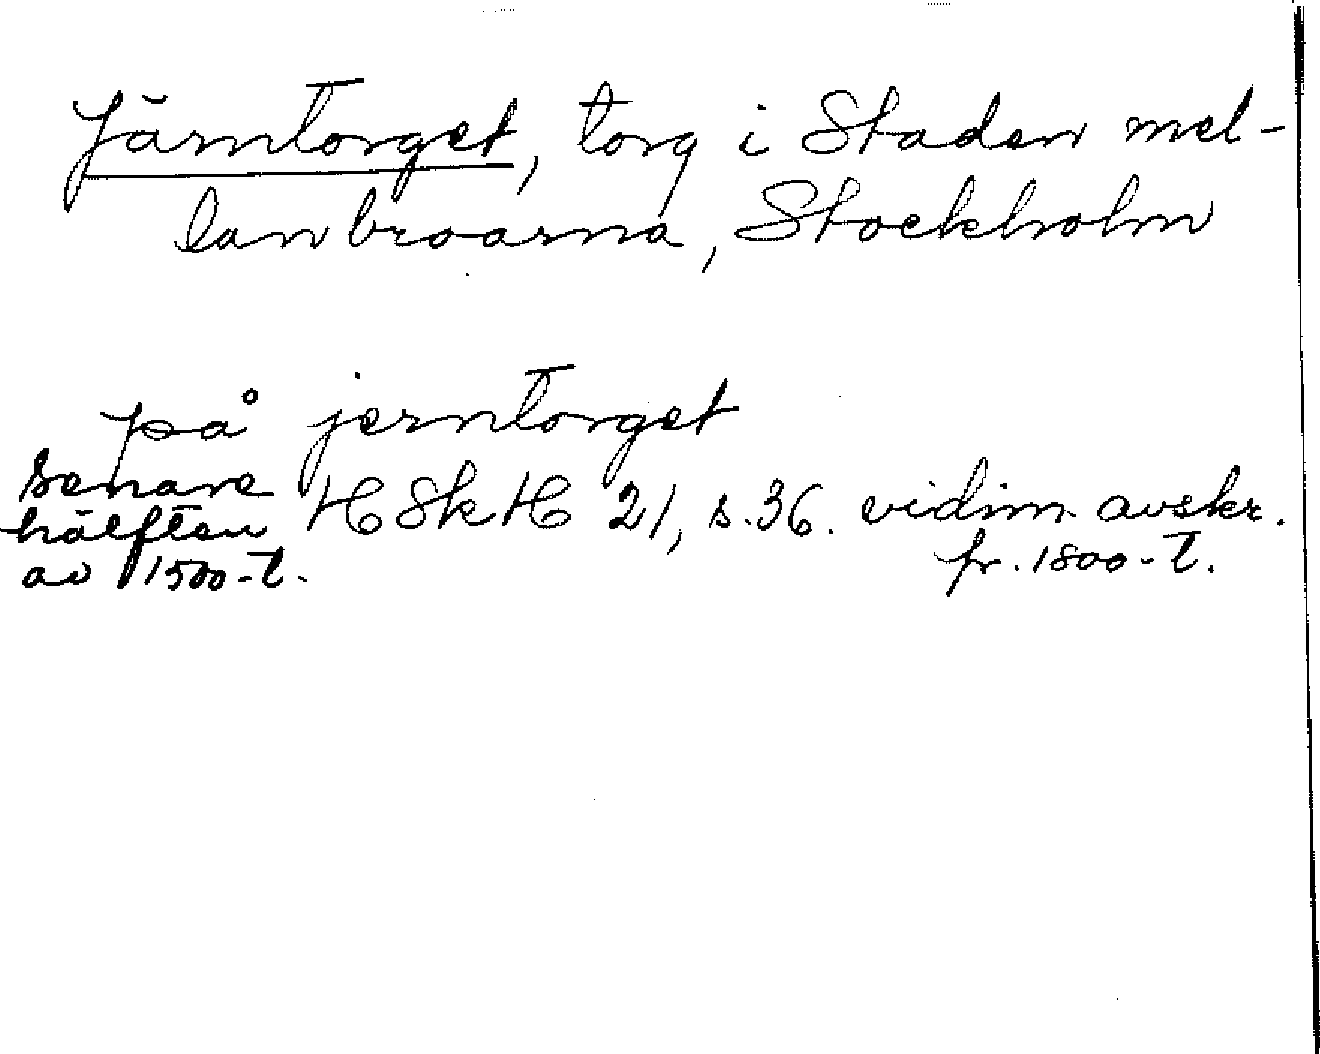 Järntorget, torg i Staden mel-
lan broarna, Stockholm
på jerntorget
senare
hälften
av 1500-t.
HSkH 21, s. 36. vidim. avskr.
fr. 1800-t.